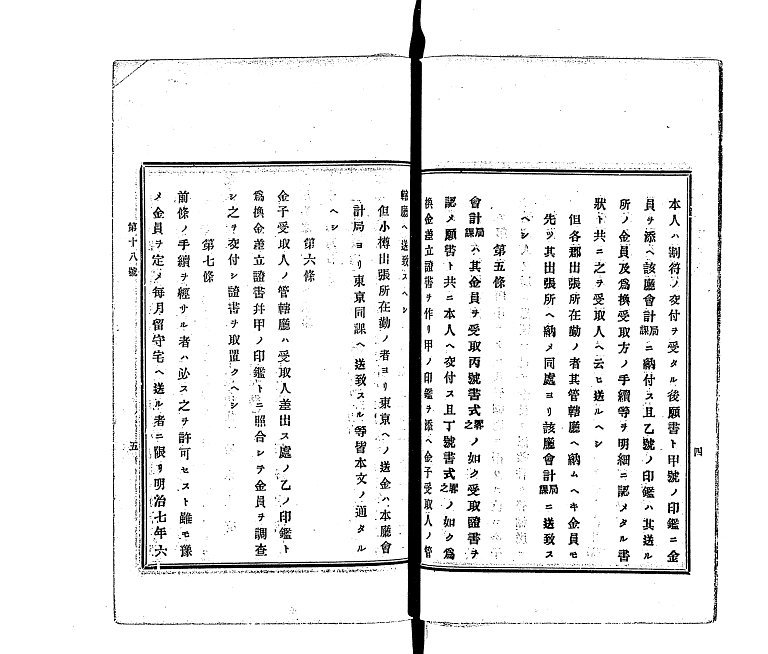 本人ハ割符ノ交付ヲ受タル後願書ト甲號ノ印鑑ニ金
員ヲ添ヘ該廳會計局課ニ納付ス且乙號ノ印鑑ハ其送ル
所ノ金員及爲換受取方ノ手續等ヲ明細ニ認メタル書
狀ト共ニ之ヲ受取人ヘ云ヒ送ルヘシ
但各郡出張所在勤ノ者其管轄廳ヘ納ムヘキ金員モ
先ツ其出張所ヘ納メ同處ヨリ該廳會計局課ニ送致ス
ヘシ
第五條
會計局課ハ其金員ヲ受取丙號書式畧之ノ如ク受取證書ヲ
認メ願書ト共ニ本人ヘ交付ス且丁號書式畧之ノ如ク爲
換金差立證書ヲ作リ甲ノ印鑑ヲ添ヘ金子受取人ノ管
四
轄廳ヘ送致スヘシ
但小樽出張所在勤ノ者ヨリ東京ヘノ送金ハ本廳會
計局ヨリ東京同課ヘ送致スル等皆本文ノ通タル
ヘシ
第六條
金子受取人ノ管轄廳ハ受取人差出ス處ノ乙ノ印鑑ト
爲換金差立證書幷甲ノ印鑑トニ照合シテ金員ヲ調査
シ之ヲ交付シ證書ヲ取置クヘシ
第七條
前條ノ手續ヲ經サル者ハ必ス之ヲ許可セスト雖モ豫
メ金員ヲ定メ每月留守宅ヘ送ル者ニ限リ明治七年六
第十八號
五